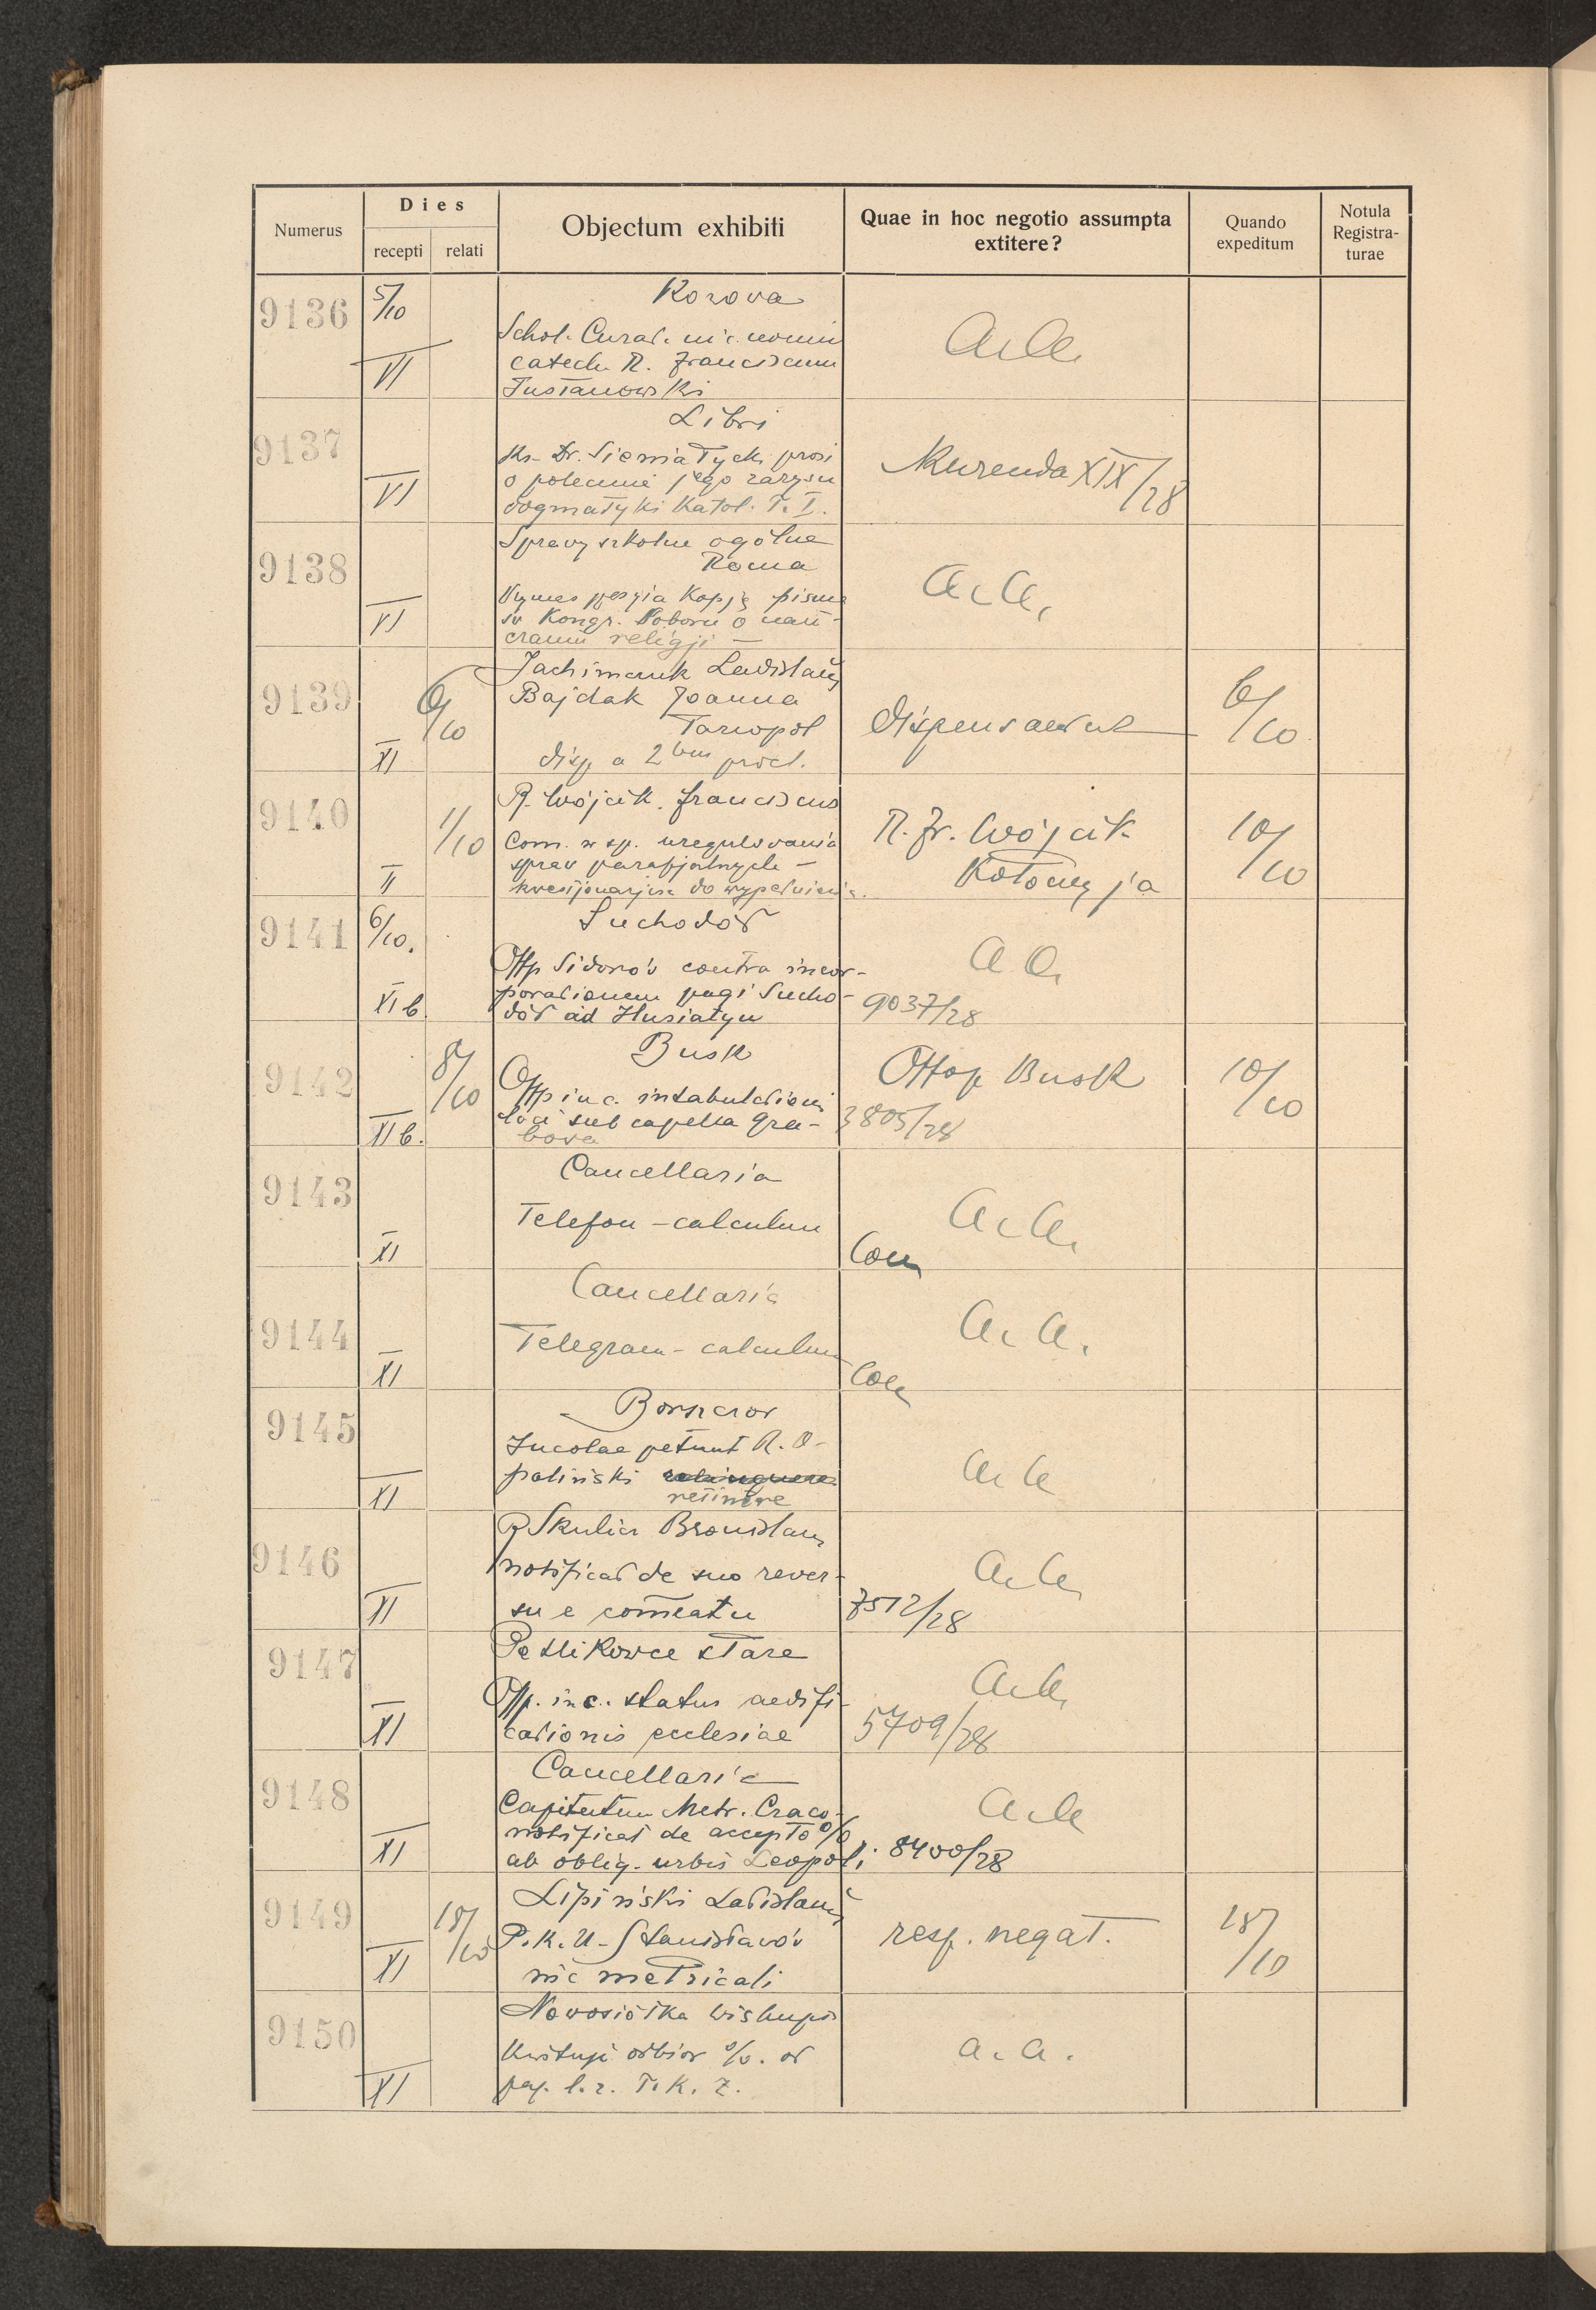 Numerus
Dies
recepti
relati
Objectum exhibiti
Quae in hoc negotio assumpta
extitere?
Quando
expeditum
Notula
Registra-
turae
9136
5/10
VI
Kozova
Schol. Curat. nomin
catech. R. Franciscum
Tustanowski
a. a.
9137
VI
Libri
Ks. Dr. Siemiatycki prosi
o polecenie jego zarysu
dogmatyki Katol. T. I.
Kurenda XIX/28
9138
VI
Sprawy szkolne ogólne
Roma
Kopję pisma
św Kongr. Soboru o nau-
czaniu religji —
a. a.
9139
XI
6/10
Ladislaus
Bajdak Joanna
Tarnopol
disp a 2bus procl.
dispensantur
6/10
9140
II
1/10
R. Wójcik Franciscus
Com. w sp. uregulowania
spraw parafjalnych —
kwestjonarjusz do wypełnienia.
R. Fr. Wójcik
Kołomyja
10/10
9141
6/10.
XI b.
Suchodół
Offp Sidorów contra incor-
porationem pagi Sucho-
dół ad Husiatyn
a a.
9037/28
9142
XI b.
8/10
Busk
Offp in c. intabulationi
loci sub capella Gra-
bova
Offop Busk
3805/28
10/10
9143
XI
Cancellaria
Telefon - calculum
a. a.
Com
9144
XI
Cancellaria
Telegram - calculum
a. a.
Com
9145
XI
Borszczow
Incolae petunt R. O-
paliński relinquere
retinere
a. a
9146
XI
R Skulicz Bronislaus
notificat de suo rever-
su e comeatu
a. a.
7512/28
9147
XI
Petlikowce stare
Offp. in c. status aedifi-
cationis ecclesiae
a. a.
5709/28
9148
XI
Cancellaria
Capitulum Metr. Craco-
notificat de accepto %
ab oblig. urbis Leopoli
a. a
8400/28
9149
XI
18/10
Lipiński Ladislaus
P.K.U - Stanisławów
in c metricali
resp. negat.
18/10
9150
XI
Nowosiółka biskupia
Kwituje odbiór %. od
pap. l. z. T. K. Z.
a. a.